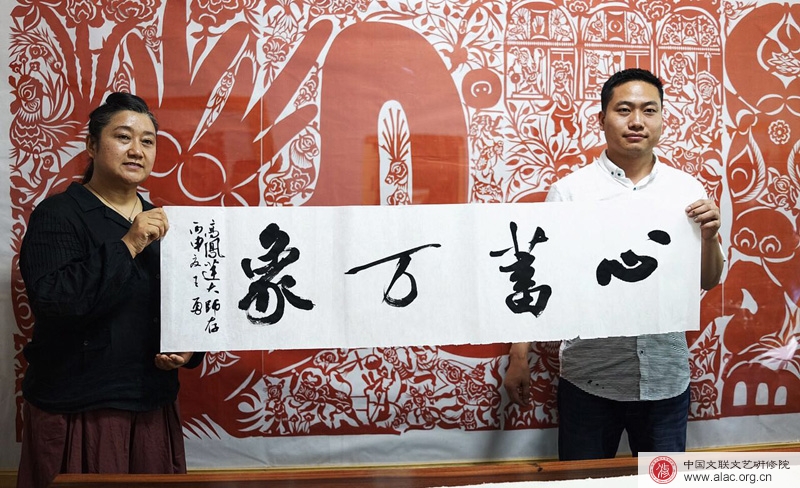 心蓄万象
高鳳莲大师存
丙申夏王勇
中国文联文艺研修院
www.alac.org.cn